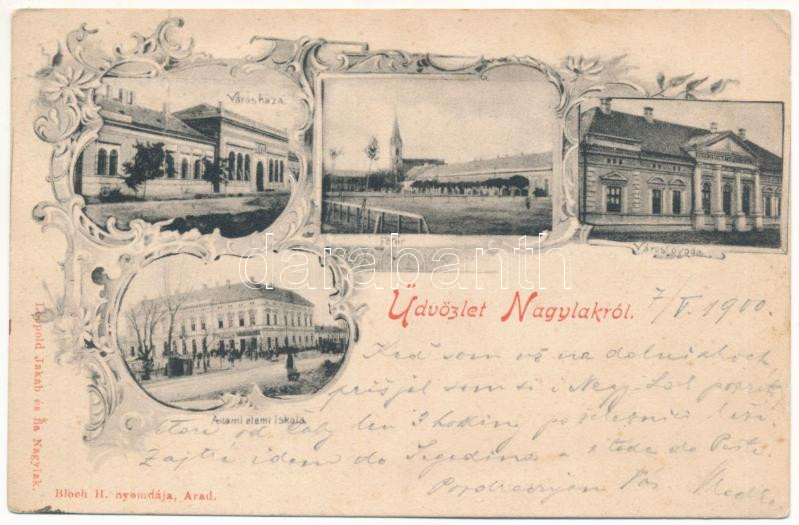 Városháza
Főtér
Városi óvoda
Állami elemi iskola
Üdvözlet Nagylakról.
7/V. 1900.
Keď som už na dolniakoch
prišjel som si i Nagy-Lak
od Čaby len 3 hodiny po železnici
Zajtra idem do Segedina a s tade do Pešti.
Pozdravujem Vás
Leopold Jakab és fia Nagylak.
Bloch H. nyomdája, Arad.
darabanth